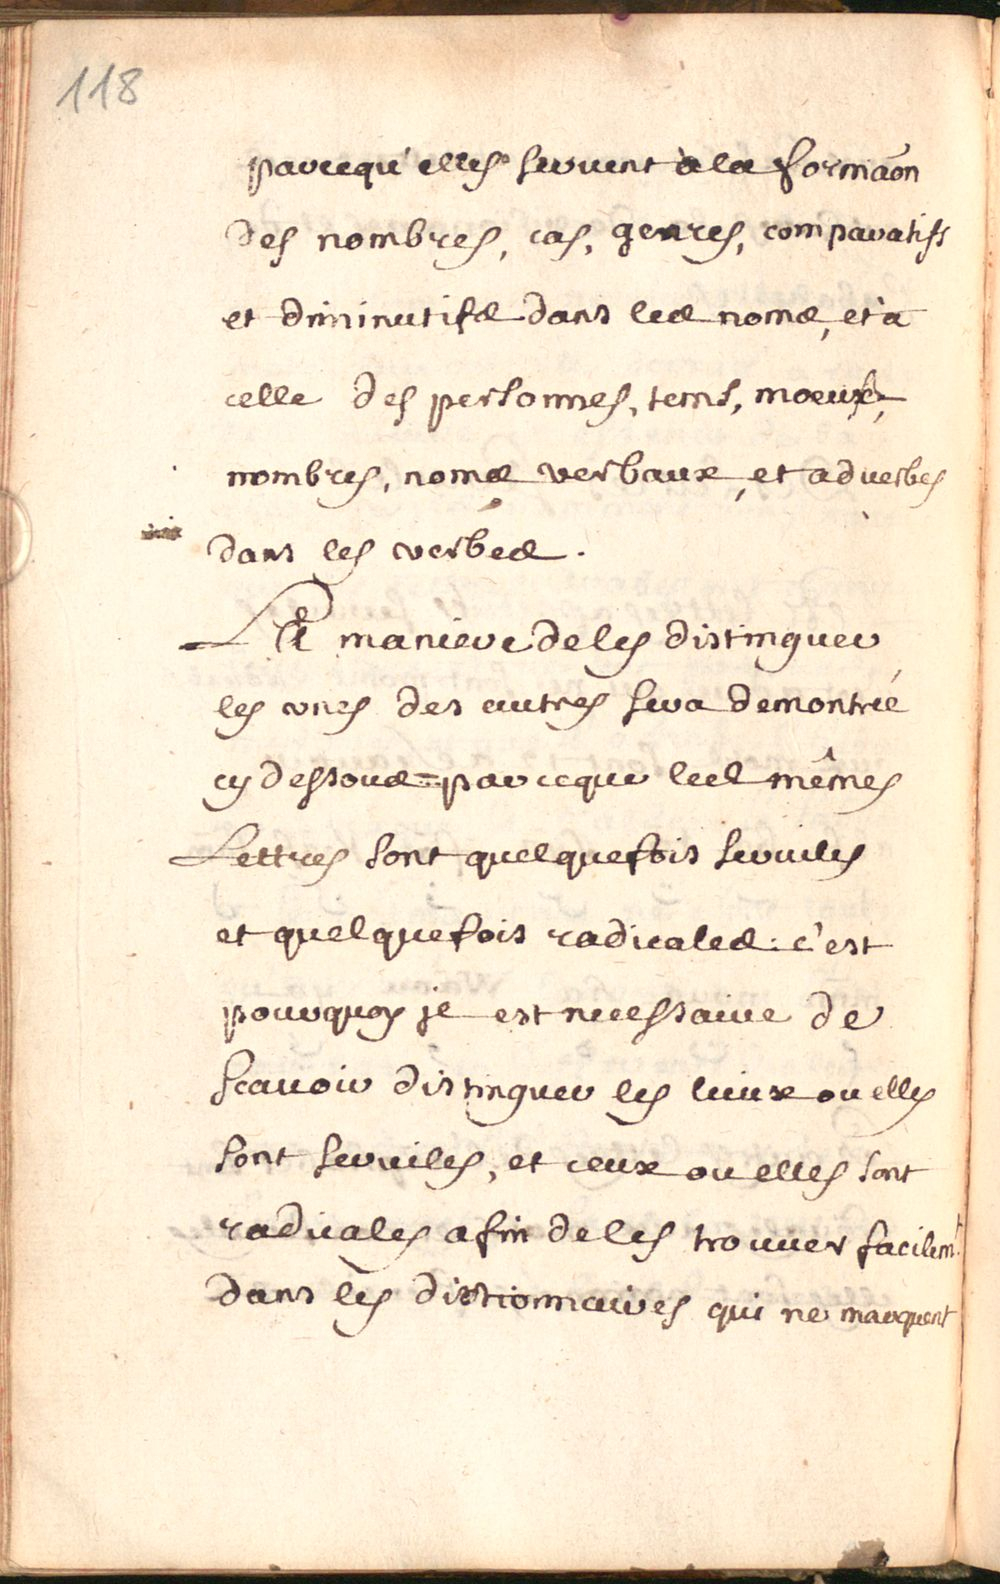 118
parcequ'elles seruent à la formãon
des nombres, cas, genres, comparatifs
et diminutifs dans les noms, et à
celle des personnes, tems, moeufs,
nombres, noms verbaux, et aduerbes
dans les verbes.
La maniere de les distinguer
les vnes des autres sera demontrée
cy dessous = parceque les mêmes
Lettres sont quelquefois seruiles
et quelquefois radicales: c'est
pourquoy je est necessaire de
scauoir distinguer les lieux ou elles
sont seruiles, et ceux ou elles sont
radicales afin de les trouuer facilemt.
dans les dictionnaires qui ne marquent